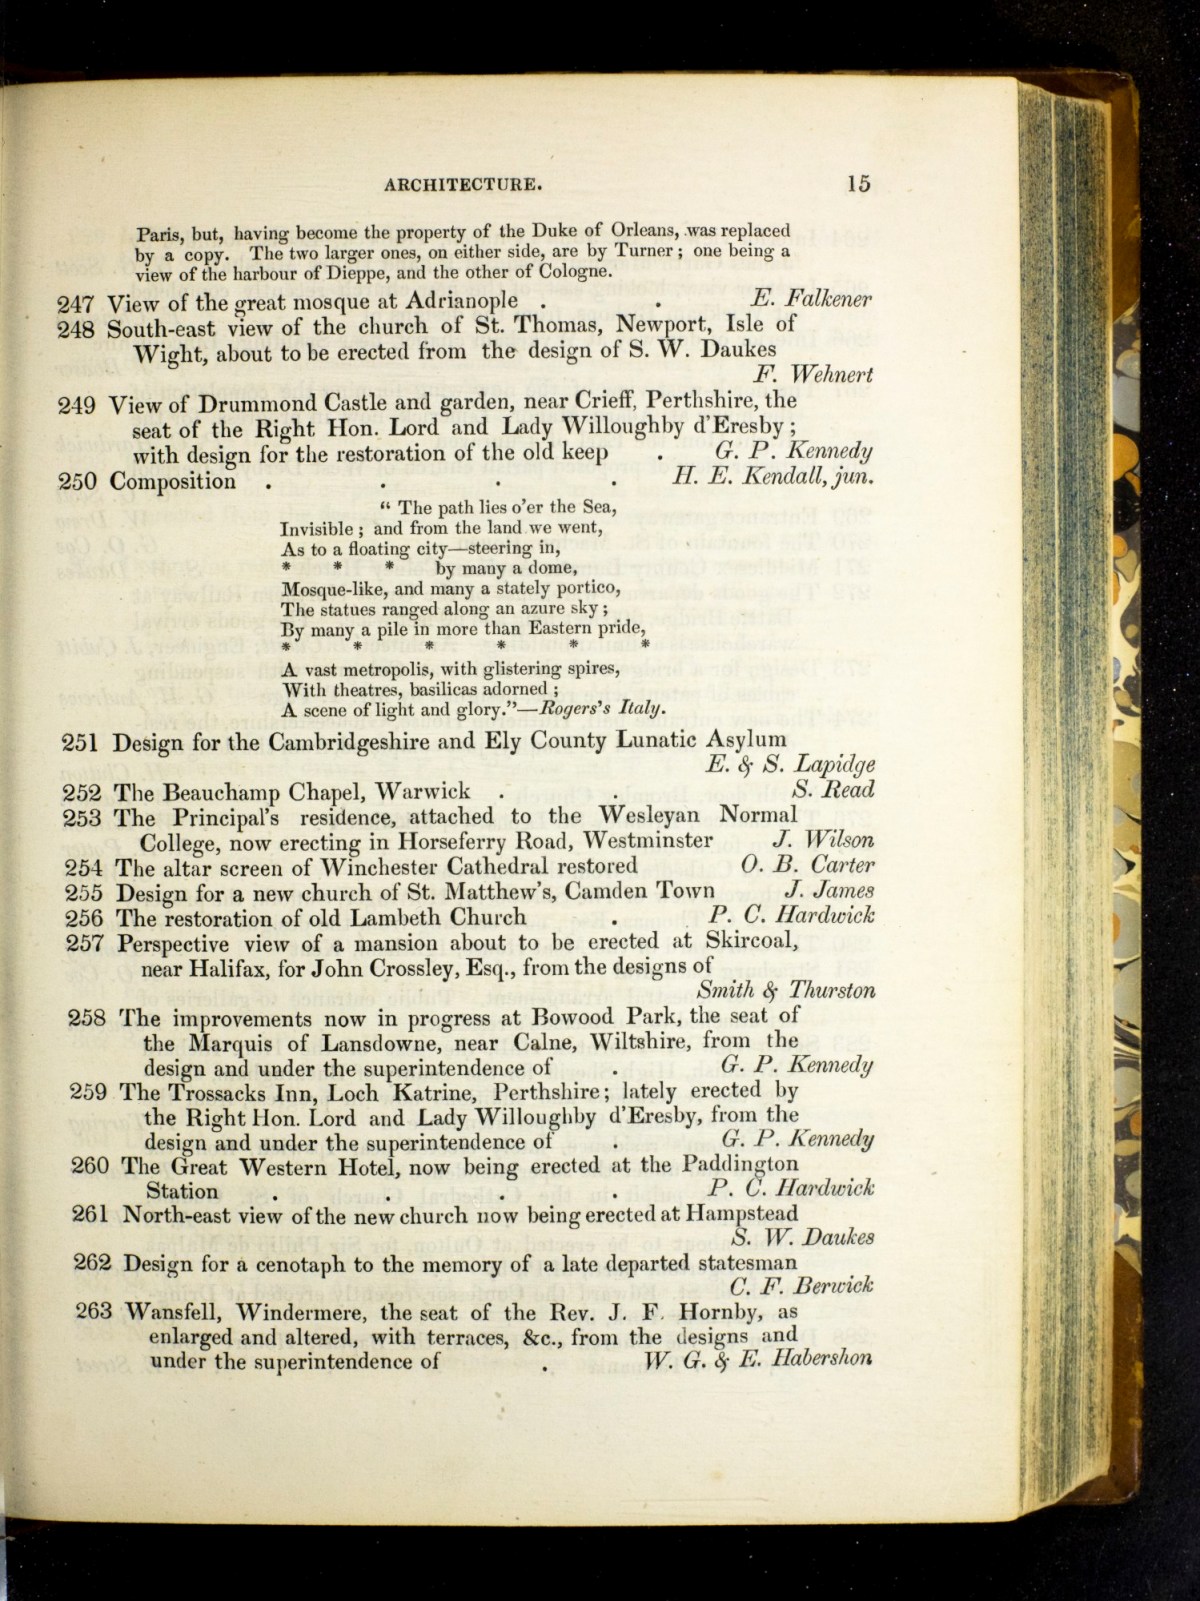 ARCHITECTURE. 15
Paris, but, having become the property of the Duke of Orleans, was replaced
by a copy. The two larger ones, on either side, are by Turner; one being a
view of the harbour of Dieppe, and the other of Cologne.
247 View of the great mosque at Adrianople . . E. Falkener
248 South-east view of the church of St. Thomas, Newport, Isle of
Wight, about to be erected from the design of S. W. Daukes
F. Wehnert
249 View of Drummond Castle and garden, near Crieff, Perthshire, the
seat of the Right Hon. Lord and Lady Willoughby d'Eresby;
with design for the restoration of the old keep . G. P. Kennedy
250 Composition . . . . H. E. Kendall, jun.
“ The path lies o'er the Sea,
Invisible; and from the land we went,
As to a floating city—steering in,
* * * by many a dome,
Mosque-like, and many a stately portico,
The statues ranged along an azure sky;
By many a pile in more than Eastern pride,
* * * * * *
A vast metropolis, with glistering spires,
With theatres, basilicas adorned;
A scene of light and glory.”—Rogers's Italy.
251 Design for the Cambridgeshire and Ely County Lunatic Asylum
E. & S. Lapidge
252 The Beauchamp Chapel, Warwick . . S. Read
253 The Principal's residence, attached to the Wesleyan Normal
College, now erecting in Horseferry Road, Westminster J. Wilson
254 The altar screen of Winchester Cathedral restored O. B. Carter
255 Design for a new church of St. Matthew's, Camden Town J. James
256 The restoration of old Lambeth Church . P. C. Hardwick
257 Perspective view of a mansion about to be erected at Skircoal,
near Halifax, for John Crossley, Esq., from the designs of
Smith & Thurston
258 The improvements now in progress at Bowood Park, the seat of
the Marquis of Lansdowne, near Calne, Wiltshire, from the
design and under the superintendence of . G. P. Kennedy
259 The Trossacks Inn, Loch Katrine, Perthshire; lately erected by
the Right Hon. Lord and Lady Willoughby d'Eresby, from the
design and under the superintendence of . G. P. Kennedy
260 The Great Western Hotel, now being erected at the Paddington
Station . . . . P. C. Hardwick
261 North-east view of the new church now being erected at Hampstead
S. W. Daukes
262 Design for a cenotaph to the memory of a late departed statesman
C. F. Berwick
263 Wansfell, Windermere, the seat of the Rev. J. F. Hornby, as
enlarged and altered, with terraces, &c., from the designs and
under the superintendence of . W. G. & E. Habershon